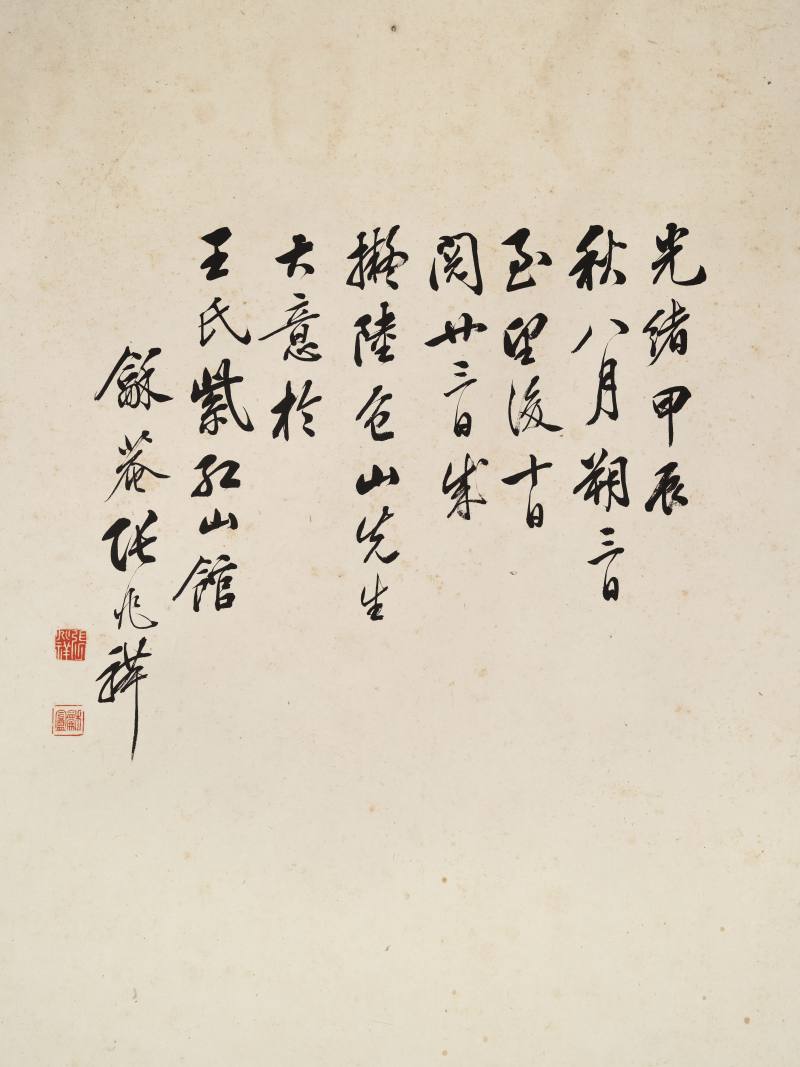 光緒甲辰
秋八月朔三日
至望後十日
閱廿三日成
擬陸包山先生
大意於
王氏紫紅山館
龢菴張兆祥
張兆祥
龢盦